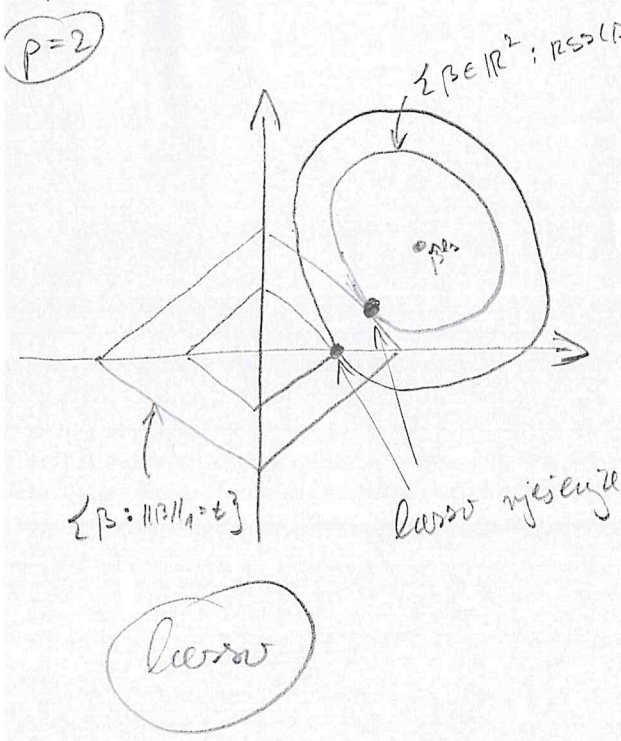 p=2
{β∈ℝ²: RSS(β
β̂ls
{β: ||β||₁=t}
lasso rješenje
lasso